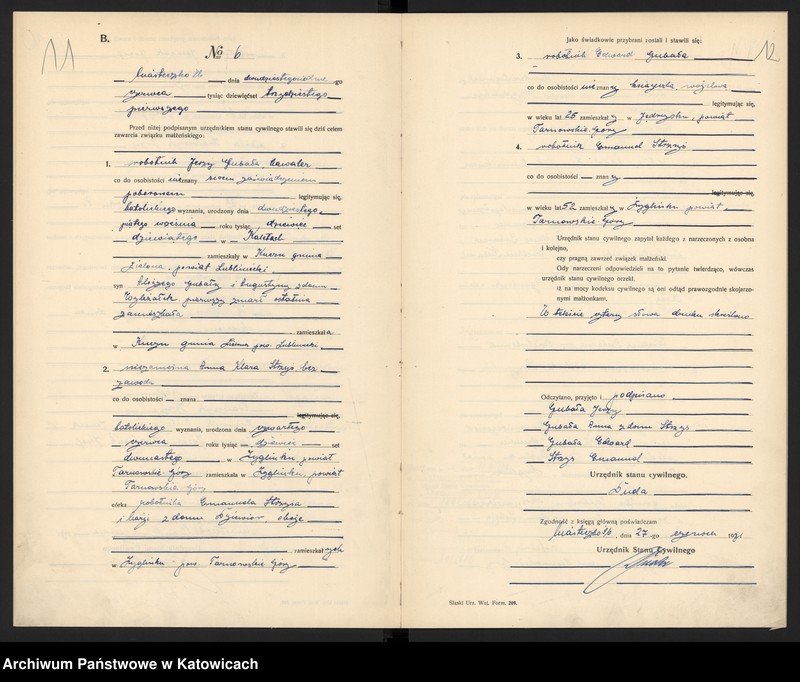 11
B.
№ 6
Miasteczko dnia dwudziestego siódmego
czerwca tysiąc dziewięćset trzydziestego
pierwszego
Przed niżej podpisanym urzędnikiem stanu cywilnego stawili się dziś celem
zawarcia związku małżeńskiego:
1. robotnik Jerzy Gubała, kawaler
co do osobistości nieznany
poborowem legitymujący się,
katolickiego wyznania, urodzony dnia dwudziestego
piątego września roku tysiąc dziewięć set
dziewiątego w Kaletach
zamieszkały w Kuczu gmina
Zielona, powiat Lubliniecki
syn Gubały i Augustyny z domu
pierwszy zmarł ostatnia
zamieszkała
zamieszkała
w Kuczu gmina Zielona pow. Lubliniecki
2. niezamężna Anna Klara Strzys bez
zawodu
co do osobistości — znana
legitymująca się,
katolickiego wyznania, urodzona dnia czwartego
czerwca roku tysiąc dziewięć set
dwunastego w Żyglinku, powiat
Tarnowskie-Góry zamieszkała w Żyglinku, powiat
Tarnowskie Góry
córka robotnika Emanuela Strzysa
i Marji z domu oboje
zamieszkałych
w Żyglinku pow. Tarnowskie Góry
12
Jako świadkowie przybrani zostali i stawili się:
3. robotnik Edward Gubała
co do osobistości nieznany książeczką wojskową
legitymując się,
w wieku lat 26 zamieszkały w Jędrysku, powiat
Tarnowskie-Góry
4. robotnik Emanuel Strzys
co do osobistości — znany
legitymując się,
w wieku lat 52 zamieszkały w Żyglinku powiat
Tarnowskie-Góry
Urzędnik stanu cywilnego zapytał każdego z narzeczonych z osobna
i kolejno,
czy pragną zawrzeć związek małżeński.
Gdy narzeczeni odpowiedzieli na to pytanie twierdząco, wówczas
urzędnik stanu cywilnego orzekł,
iż na mocy kodeksu cywilnego są oni odtąd prawozgodnie skojarzonymi
małżonkami.
W tekście cztery słowa druku skreślono.
Odczytano, przyjęto i podpisano
Gubała Jerzy
Gubała Anna z domu Strzys
Gubała Edward
Strzys Emanuel
Urzędnik stanu cywilnego.
Duda
Zgodność z księgą główną poświadczam
dnia 27-go czerwca 1931
Urzędnik Stanu Cywilnego
Duda
Śląski Urz. Woj. Form. 209.
Archiwum Państwowe w Katowicach